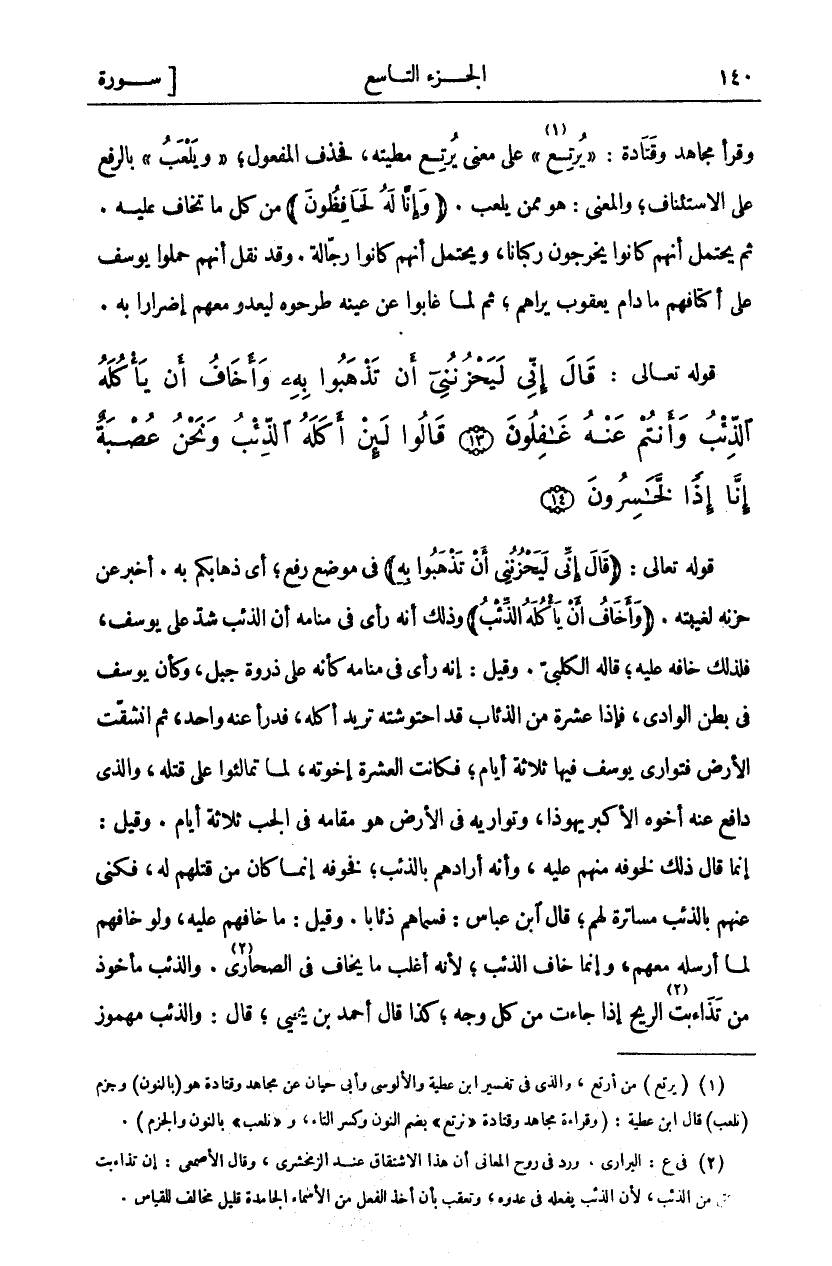 ١٤٠ الجـزء التـاسع [ ســورة
وقرأ مجاهد وقَتَادة : «يُرتِع»(١) على معنى يُرتِع مطيته، فحذف المفعول؛ «ويَلْعَبُ» بالرفع
على الاستئناف؛ والمعنى : هو ممن يلعب . (وَإِنَّا لَهُ لَحَافِظُونَ) من كل ما تخاف عليـه .
ثم يحتمل أنهم كانوا يخرجون ركبانا، ويحتمل أنهم كانوا رجّالة . وقد نقل أنهم حملوا يوسف
على أكتافهم مادام يعقوب يراهم ؛ ثم لمـا غابوا عن عينه طرحوه ليعدو معهم إضرارا به .
قوله تعـالى : قَالَ إِنِّى لَيَحْزُنُنِىٓ أَن تَذْهَبُوا بِهِۦ وَأَخَافُ أَن يَأْكُلَهُ
ٱلذِّئْبُ وَأَنتُمْ عَنْـهُ غَـٰفِلُونَ ۝١٣ قَالُوا لَئِنْ أَكَلَهُ ٱلذِّئْبُ وَنَحْنُ عُصْبَةٌ
إِنَّا إِذًا لَّخَـٰسِرُونَ ۝١٤
قوله تعالى : (قَالَ إِنِّى لَيَحْزُنُنِى أَنْ تَذْهَبُوا بِهِ) فى موضع رفع؛ أى ذهابكم به . أخبر عن
حزنه لغيبته . (وَأَخَافُ أَنْ يَأْكُلَهُ الذِّئْبُ) وذلك أنه رأى فى منامه أن الذئب شدّ على يوسف،
فلذلك خافه عليه؛ قاله الكلبىّ . وقيل : إنه رأى فى منامه كأنه على ذروة جبل، وكأن يوسف
فى بطن الوادى، فإذا عشرة من الذئاب قد احتوشته تريد أكله، فدرأ عنه واحد، ثم انشقّت
الأرض فتوارى يوسف فيها ثلاثة أيام؛ فكانت العشرة إخوته، لمـا تمالئوا على قتله، والذى
دافع عنه أخوه الأكبر يهوذا، وتواريه فى الأرض هو مقامه فى الجب ثلاثة أيام . وقيل :
إنما قال ذلك لخوفه منهم عليه ، وأنه أرادهم بالذئب؛ فخوفه إنمـا كان من قتلهم له ، فكنى
عنهم بالذئب مساترة لهم؛ قال ٱبن عباس : فسماهم ذئابا . وقيل : ما خافهم عليه، ولو خافهم
لمـا أرسله معهم، وإنما خاف الذئب ؛ لأنه أغلب ما يخاف فى الصحارى(٢) . والذئب مأخوذ
من تَذَاءبت(٢) الريح إذا جاءت من كل وجه ؛ كذا قال أحمد بن يحيى ؛ قال : والذئب مهموز
(١) (يرتع) من أرتع ، والذى فى تفسير ابن عطية والألوسى وأبى حيان عن مجاهد وقتادة هو (بالنون) وجزم
(نلعب) قال ابن عطية : (وقراءة مجاهد وقتادة «نرتع» بضم النون وكسر التاء، و «نلعب» بالنون والجزم) .
(٢) فى ع : البرارى . ورد فى روح المعانى أن هذا الاشتقاق عنـد الزمخشرى ، وقال الأصمعى : إن تذاءبت
من الذئب، لأن الذئب يفعله فى عدوه ؛ وتعقب بأن أخذ الفعل من الأسماء الجامدة قليل مخالف للقياس .